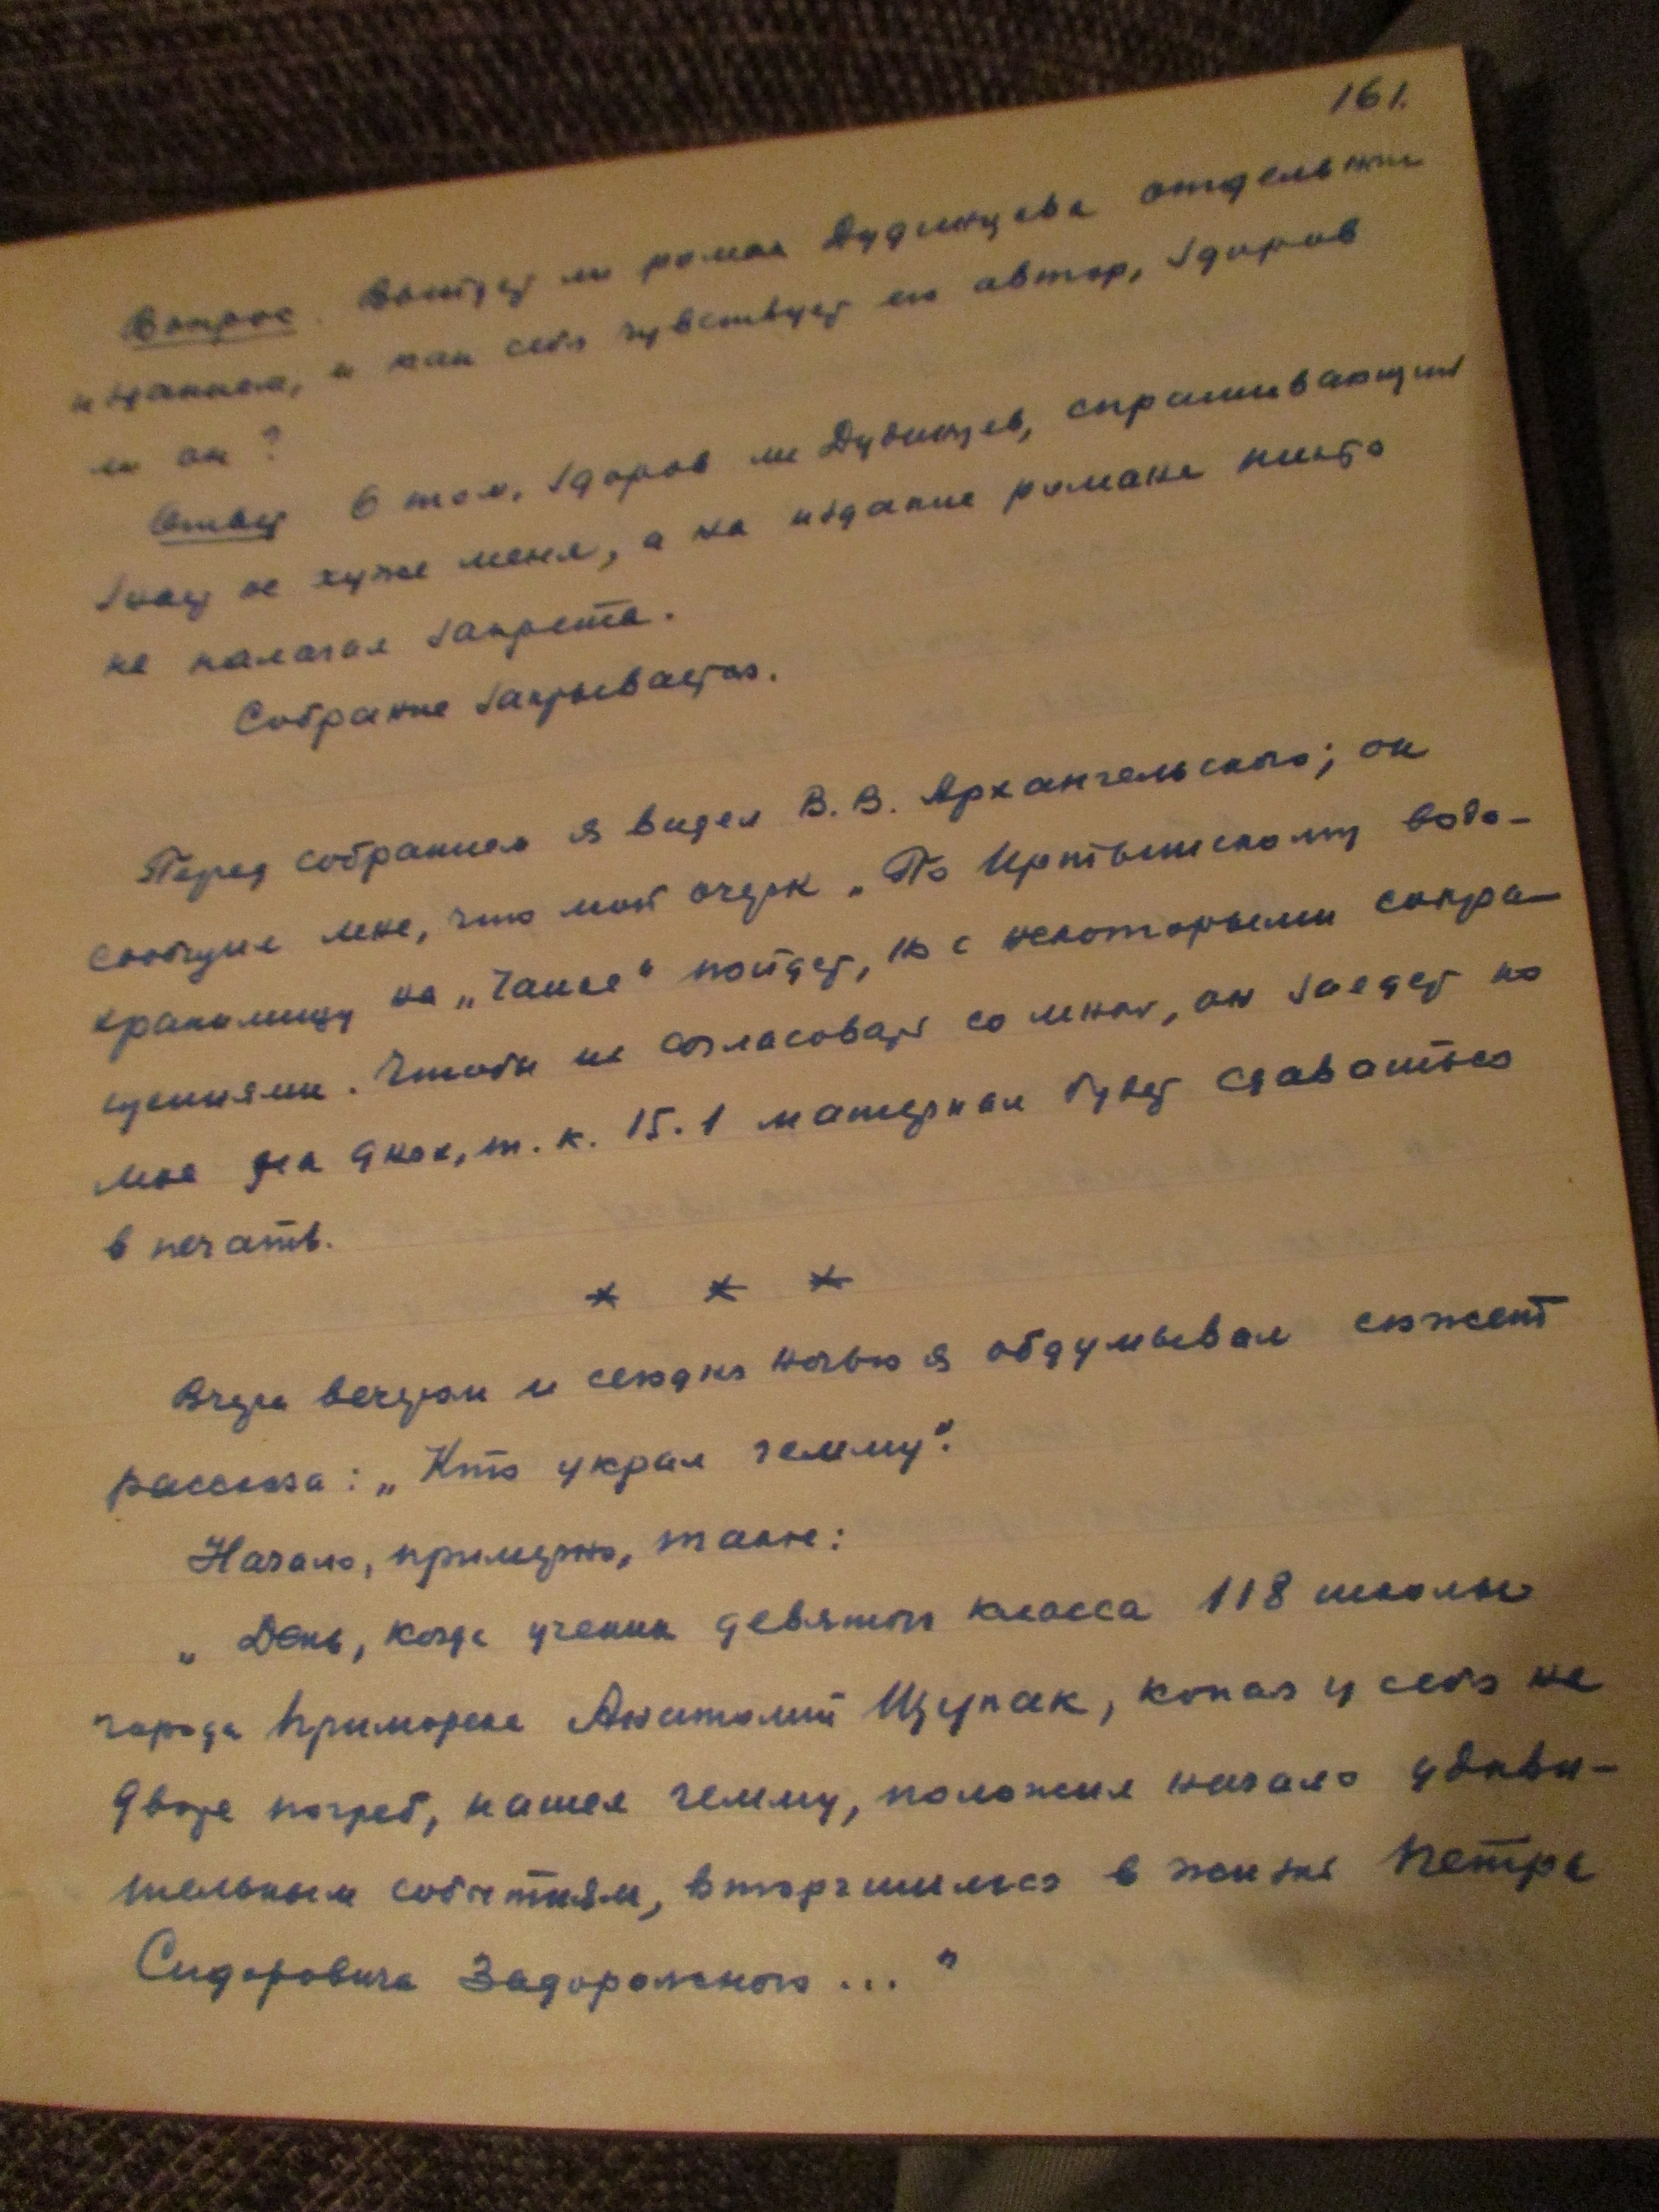 161.
Вопрос. Выйдет ли роман Дудинцева отдельным
изданием, и как себя чувствует его автор, здоров
ли он?
Ответ О том, здоров ли Дудинцев, спрашивающий
знает не хуже меня, а на издание романа никто
не налагал запрета.
Собрание закрывается.
Перед собранием я видел В. В. Архангельского; он
сообщил мне, что мой очерк „По Иртышскому водо-
хранилищу на „Чайке“ пойдет, но с некоторыми сокра-
щениями. Чтобы их согласовать со мной, он заедет ко
мне на днях, т. к. 15.1 материал будет сдаваться
в печать.
* * *
Вчера вечером и сегодня ночью я обдумывал сюжет
рассказа: „Кто украл гемму“.
Начало, примерно, такое:
„День, когда ученик девятого класса 118 школы
города Приморска Анатолий Щупак, копая у себя на
дворе погреб, нашел гемму, положил начало удиви-
тельным событиям, вторгшимся в жизнь Петра
Сидоровича Задорожного ... “